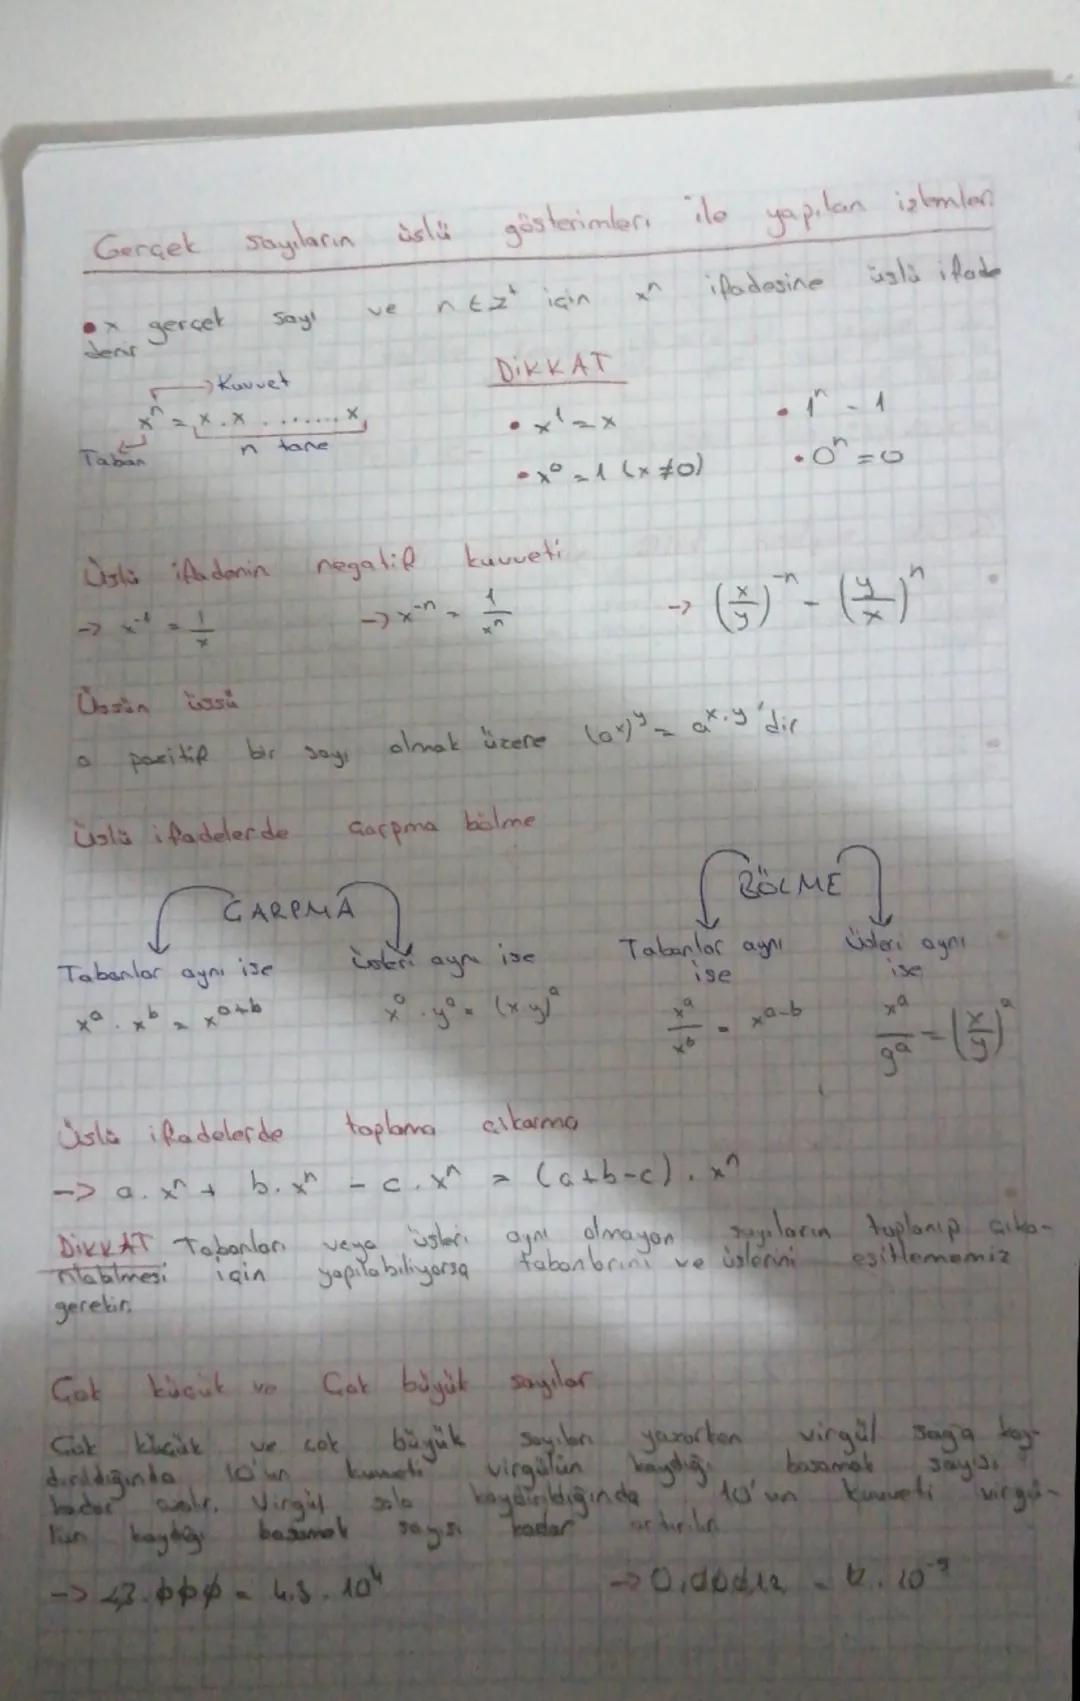 Gerçek sayıların üslü gösterimleri ile yapılan işlemler
• x gerçek sayı ve n ∈ Z⁺ için xⁿ ifadesine üslü ifade
denir
Kuvvet
xⁿ = x . x . ....... x
n tane
Taban
DİKKAT
• x¹ = x
• 1ⁿ = 1
• x⁰ = 1 (x ≠ 0)
• 0ⁿ = 0
Üslü ifadenin negatif kuvveti
-> x⁻¹ = 1/x
-> x⁻ⁿ = 1/xⁿ
-> (x/y)⁻ⁿ = (y/x)ⁿ
Üssün üssü
a pozitif bir sayı olmak üzere (aˣ)ʸ = aˣ·ʸ 'dir
Üslü ifadelerde çarpma bölme
ÇARPMA
Tabanlar aynı ise
xᵃ . xᵇ = xᵃ⁺ᵇ
üsleri aynı ise
xᵃ . yᵃ = (x.y)ᵃ
BÖLME
Tabanlar aynı
ise
xᵃ/xᵇ = xᵃ⁻ᵇ
Üsleri aynı
ise
xᵃ/yᵃ = (x/y)ᵃ
Üslü ifadelerde toplama çıkarma
-> a. xⁿ + b. xⁿ - c. xⁿ = (a+b-c). xⁿ
DİKKAT Tabanları veya üsleri aynı olmayan sayıların toplanıp çıka-
rılabilmesi için yapılabiliyorsa tabanlarını ve üslerini eşitlememiz
gerekir.
Çok küçük ve Çok büyük sayılar
Çok küçük ve çok büyük sayıları yazarken virgül sağa kay-
dırıldığında 10'un kuvveti virgülün kaydığı basamak sayısı
kadar azalır. Virgül sola kaydırıldığında 10'un kuvveti virgü-
lün kaydığı basamak sayısı kadar artırılır
-> 43.000 = 4.3 . 10⁴
-> 0,00012 =